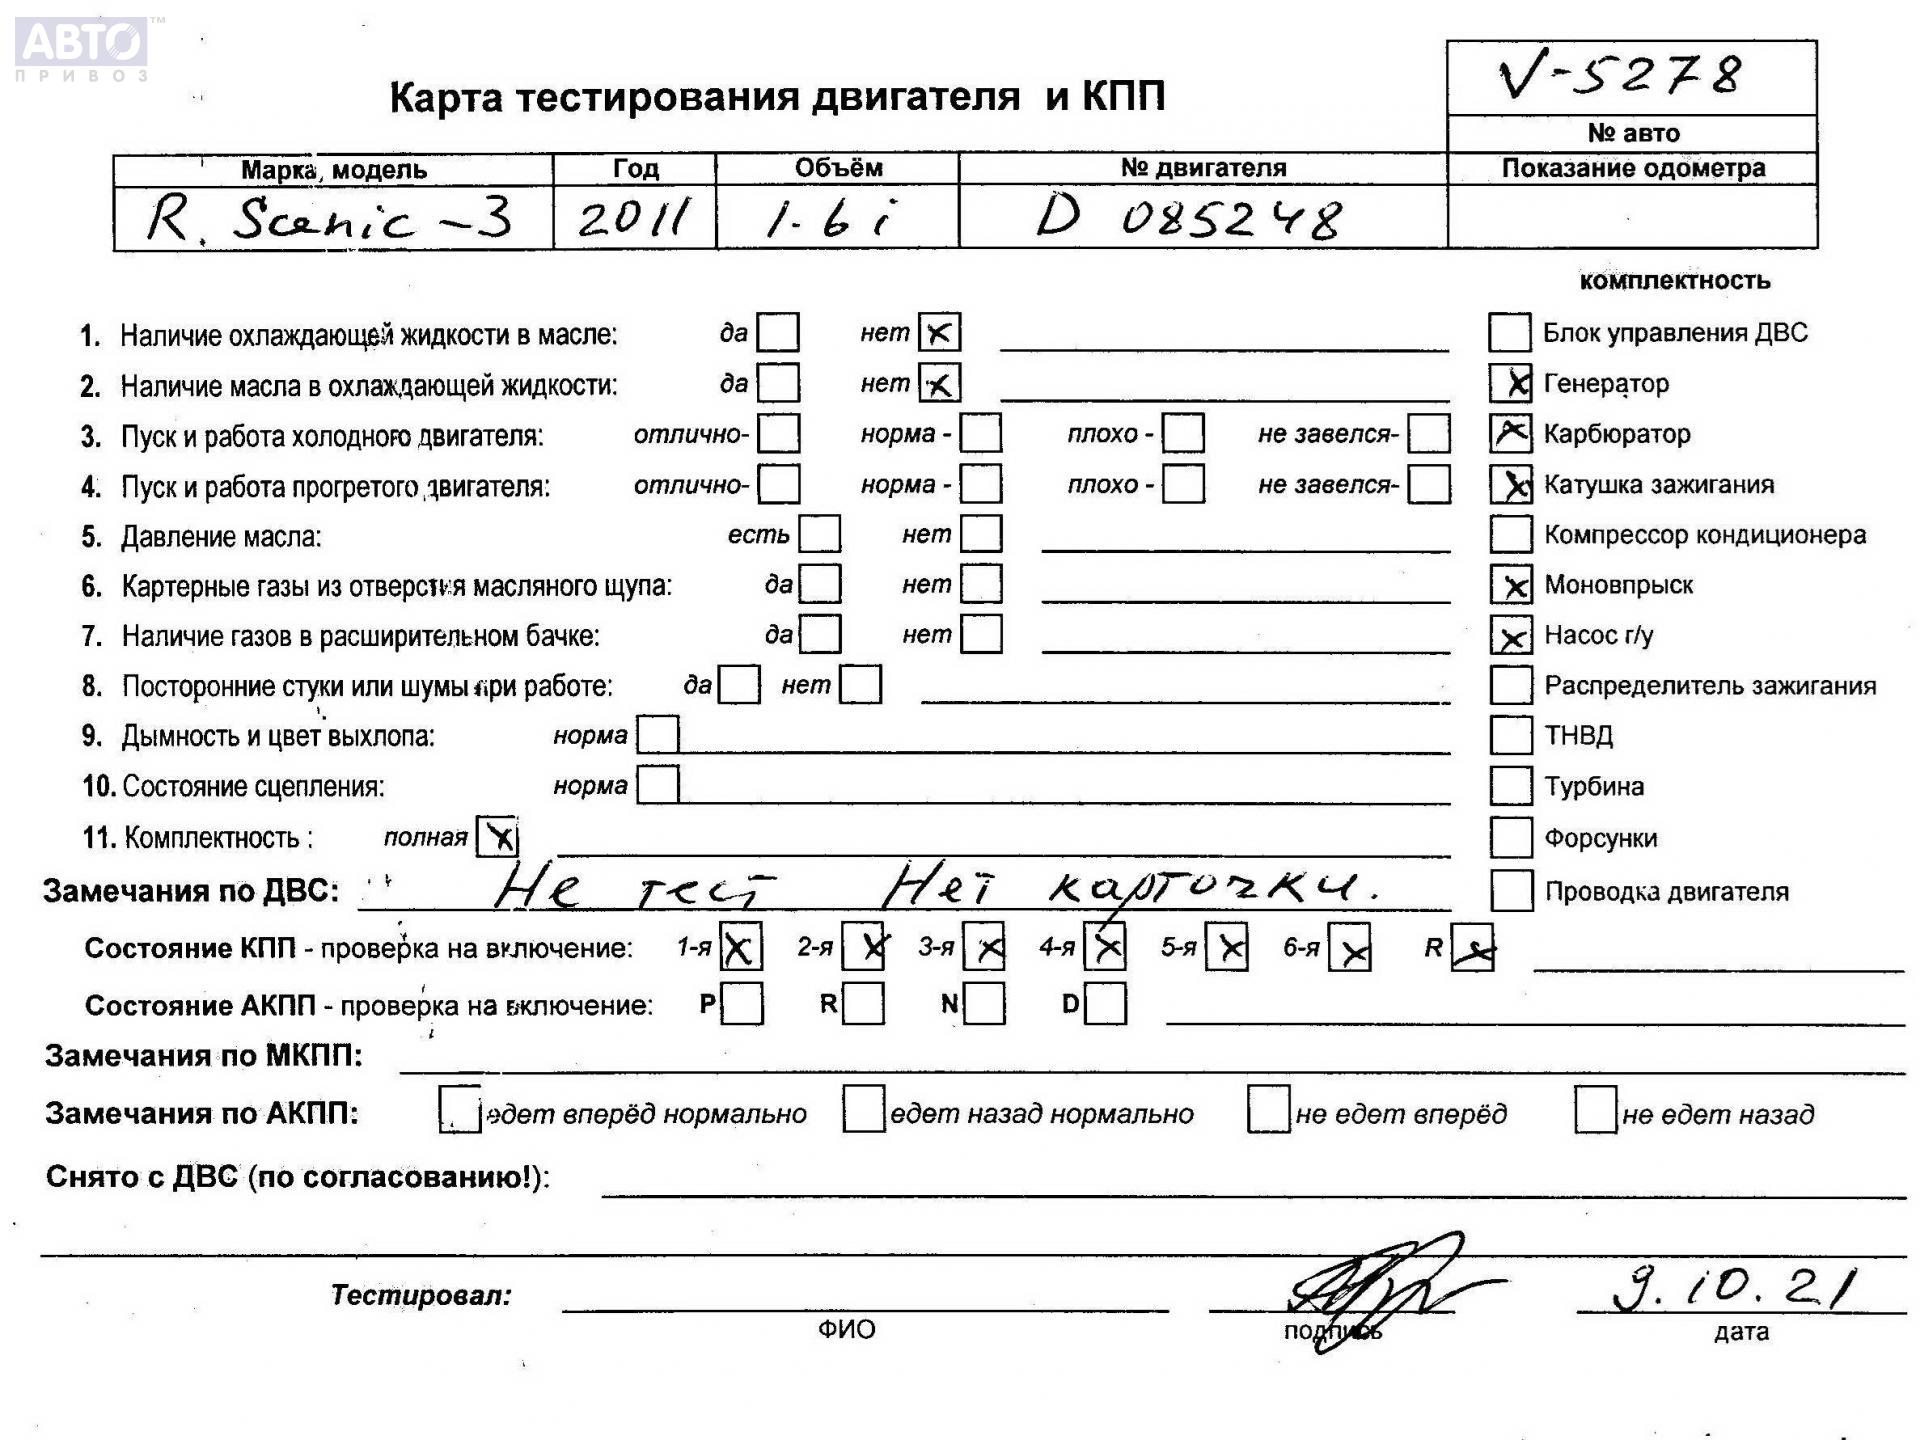 АВТО™
ПРИВОЗ
V-5278
Карта тестирования двигателя и КПП
№ авто
Марка, модель Год Объём № двигателя Показание одометра
R. Scenic-3 2011 1.6i D 085248
комплектность
1. Наличие охлаждающей жидкости в масле: да нет x Блок управления ДВС
2. Наличие масла в охлаждающей жидкости: да нет x x Генератор
3. Пуск и работа холодного двигателя: отлично- норма - плохо - не завелся- x Карбюратор
4. Пуск и работа прогретого двигателя: отлично- норма - плохо - не завелся- x Катушка зажигания
5. Давление масла: есть нет Компрессор кондиционера
6. Картерные газы из отверстия масляного щупа: да нет x Моновпрыск
7. Наличие газов в расширительном бачке: да нет x Насос г/у
8. Посторонние стуки или шумы при работе: да нет Распределитель зажигания
9. Дымность и цвет выхлопа: норма ТНВД
10. Состояние сцепления: норма Турбина
11. Комплектность : полная x Форсунки
Замечания по ДВС: Не тест Нет карточки. Проводка двигателя
Состояние КПП - проверка на включение: 1-я x 2-я x 3-я x 4-я x 5-я x 6-я x R x
Состояние АКПП - проверка на включение: P R N D
Замечания по МКПП:
Замечания по АКПП: едет вперёд нормально едет назад нормально не едет вперёд не едет назад
Снято с ДВС (по согласованию!):
Тестировал: 9.10.21
ФИО подпись дата